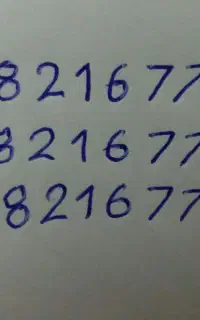 821677
821677
821677